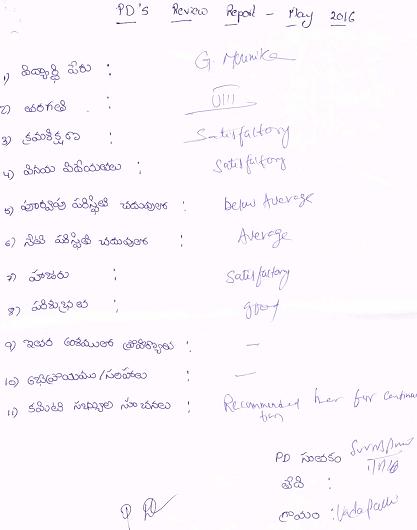 PD's Review Report - May 2016
1) విద్యార్థి పేరు : G. Mounika
2) తరగతి : VIII
3) క్రమశిక్షణ : Satisfactory
4) వినయ విధేయతలు : Satisfactory
5) పూర్వపు పరిస్థితి చదువులో : below Average
6) నేటి పరిస్థితి చదువులో : Average
7) హాజరు : Satisfactory
8) పరిశుభ్రత : good
9) ఇతర అంశములలో ప్రావీణ్యత : —
10) అభిప్రాయము/సలహాలు —
11) కమిటి సభ్యుల సూచనలు : Recommended her for continua
tion
PD సంతకం
తేది :
గ్రామం : Vadapalli
PD